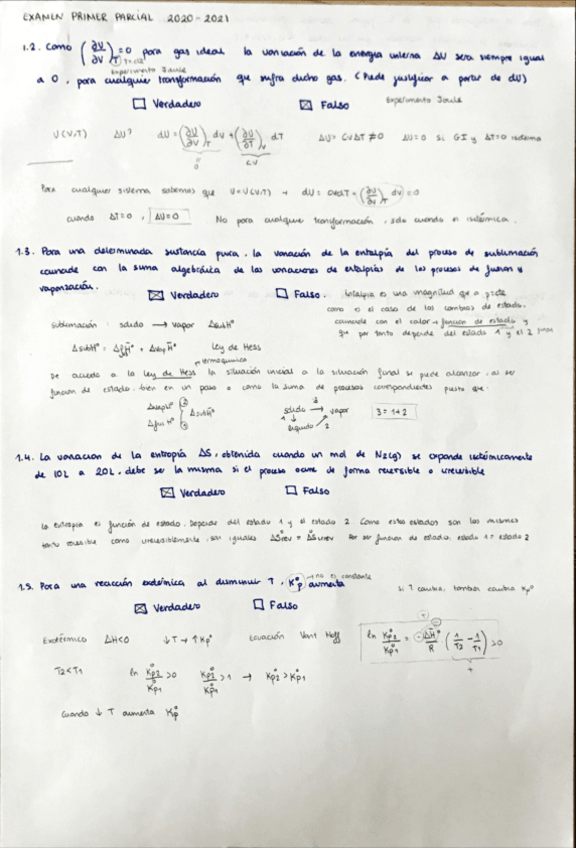 EXAMEN PRIMER PARCIAL 2020-2021
1.2. Como (∂U/∂V)T = 0 para gas ideal la variación de la energía interna ΔU será siempre igual
Experimento Joule
a 0, para cualquier transformación que sufra dicho gas. (Puede justificar a partir de dU)
☐ Verdadero ☒ Falso Experimento Joule
U(V,T) ΔU? dU = (∂U/∂V)T dV + (∂U/∂T)V dT ΔU = CVΔT ≠ 0 ΔU=0 si GI y ΔT=0
0 CV
Para cualquier sistema sabemos que U=U(V,T) → dU = CVdT + (∂U/∂V)T dV = 0
cuando ΔT=0, ΔU=0 No para cualquier transformación, solo cuando es isotérmica.
1.3. Para una determinada sustancia pura, la variación de la entalpía del proceso de sublimación
coincide con la suma algebráica de las variaciones de entalpías de los procesos de fusión y
vaporización. ☒ Verdadero ☐ Falso. Entalpía es una magnitud que a P cte
como es el caso de los cambios de estado.
coincide con el calor → función de estado y
que por tanto depende del estado 1 y el 2
sublimación: sólido → vapor ΔsubH°
ΔsubH° = ΔfH° + ΔvapH° Ley de Hess
termoquímica
De acuerdo a la Ley de Hess la situación inicial a la situación final se puede alcanzar, al ser
función de estado, bien en un paso o como la suma de procesos correspondientes puesto que:
ΔvapH° 2
ΔfusH° 1 ΔsubH°
sólido 3 → vapor 3=1+2
1 líquido 2
1.4. La variación de la entropía ΔS, obtenida cuando un mol de N2(g) se expande isotérmicamente
de 10L a 20L, debe ser la misma si el proceso ocurre de forma reversible o irreversible
☒ Verdadero ☐ Falso
La entropía es función de estado. Depende del estado 1 y el estado 2 Como estos estados son los mismos
tanto reversible como irreversiblemente, son iguales ΔSrev = ΔSirrev Por ser función de estado, estado 1 = estado 2
1.5. Para una reacción exotérmica al disminuir T, Kp° aumenta
→ no es constante
Si T cambia, también cambia Kp°
☒ Verdadero ☐ Falso
Exotérmico ΔH<0 ↓T → ↑Kp° Ecuación Vant Hoff ln Kp2°/Kp1° = -ΔH°/R (1/T2 - 1/T1) >0
T2<T1 ln Kp2°/Kp1° >0 Kp2°/Kp1° >1 → Kp2° > Kp1°
+
Cuando ↓ T aumenta Kp°